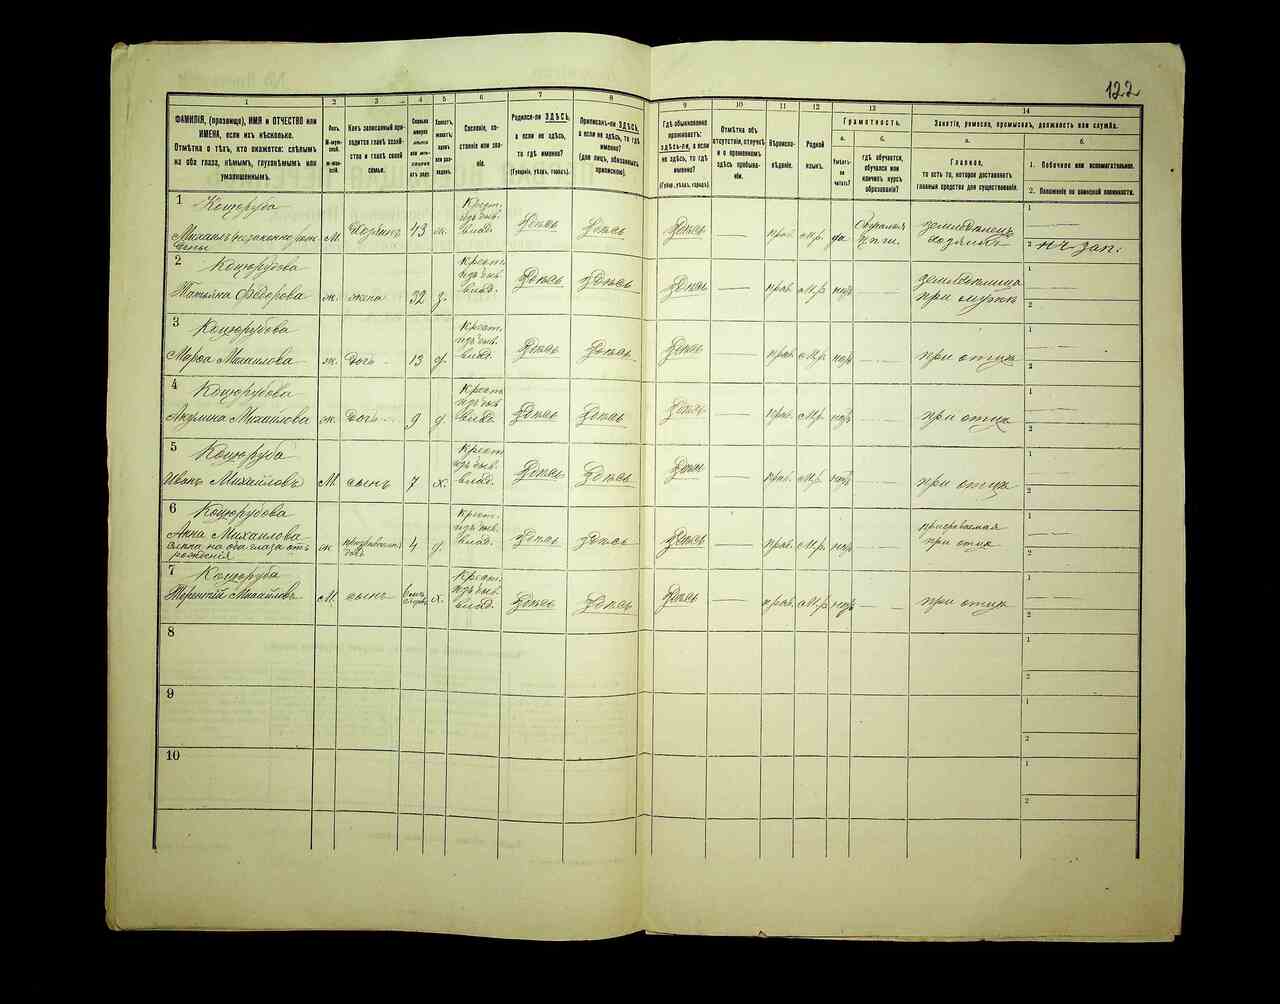 122
1 2 3 4 5 6 7 8 9 10 11 12 13 14
ФАМИЛІЯ, (прозвище), ИМЯ и ОТЧЕСТВО или
ИМЕНА, если ихъ нѣсколько.
Отмѣтка о тѣхъ, кто окажется: слѣпымъ
на оба глаза, нѣмымъ, глухонѣмымъ или
умалишеннымъ.
Полъ.
М-муж-
ской.
Ж-жен-
скій.
Какъ записанный при-
ходится главѣ хозяй-
ства и главѣ своей
семьи.
Сословіе, со-
стояніе или зва-
ніе.
Родился-ли ЗДѢСЬ,
а если не здѣсь,
то гдѣ именно?
(Губернія, уѣздъ, городъ).
Приписанъ-ли ЗДѢСЬ,
а если не здѣсь, то гдѣ
именно?
(для лицъ, обязанныхъ
припискою).
Гдѣ обыкновенно
проживаетъ:
ЗДѢСЬ-ли, а если
не здѣсь, то гдѣ
именно?
(Губер., уѣздъ, городъ).
Отмѣтка объ
отсутствіи, отлучкѣ
и о временномъ
здѣсь пребыва-
ніи.
Вѣроиспо-
вѣданіе.
Родной
языкъ.
Грамотность.
а. б.
Умѣетъ-
ли
читать?
гдѣ обучается,
обучался или
кончилъ курсъ
образованія?
Занятіе, ремесло, промыселъ, должность или служба.
а. б.
Главное,
то есть то, которое доставляетъ
главныя средства для существованія.
1. Побочное или вспомогательное.
2. Положеніе по воинской повинности.
1 Коцюруба
Михаилъ незаконно рож
дены М. хозяинъ 43 ж. Крест. изъ быв. влад. Здѣсь Здѣсь Здѣсь — прав. М.р. да земледѣлецъ хозяинъ 1 — 2
2 Коцюрубова
Татьяна Федорова ж. жена 32 з. Крест. изъ быв. влад. Здѣсь Здѣсь Здѣсь — прав. М.р. нѣтъ — при мужѣ 1 — 2
3 Коцюрубова
Марѳа Михаилова ж. дочь 13 д. Крест. изъ быв. влад. Здѣсь Здѣсь Здѣсь — прав. М.р. нѣтъ — при отцѣ 1 — 2
4 Коцюрубова
Акулина Михаилова ж. дочь 9 д. Крест. изъ быв. влад. Здѣсь Здѣсь Здѣсь — прав. М.р. нѣтъ — при отцѣ 1 — 2
5 Коцюруба
Иванъ Михайловъ М. сынъ 7 х. Крест. изъ быв. влад. Здѣсь Здѣсь Здѣсь — прав. М.р. нѣтъ — при отцѣ 1 — 2
6 Коцюрубова
Анна Михаилова
слѣпа на оба глаза отъ
рожденія ж. 4 д. Крест. изъ быв. влад. Здѣсь Здѣсь Здѣсь — прав. М.р. нѣтъ — призреваемая при отцѣ 1 — 2
7 Коцюруба
Терентій Михайловъ М. сынъ х. Крест. изъ быв. влад. Здѣсь Здѣсь Здѣсь — прав. М.р. нѣтъ — при отцѣ 1 — 2
8 1 2
9 1 2
10 1 2